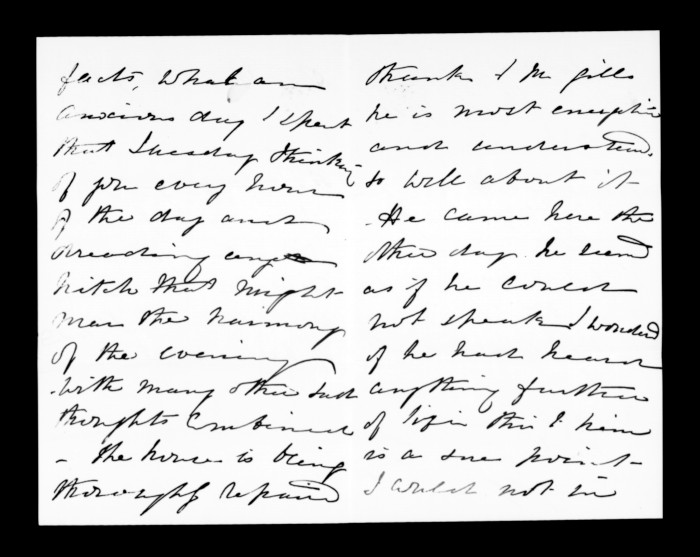 facts, What an
anxious day I spent
that Tuesday thinking
of you every hour
of the day and
dreading any
hitch that might
mar the harmony
of the evening
with many other such
thoughts combined
- the house is being
thoroughly repaired
thanks to Mr Gills
he is most energetic
and understands
so well about it
He came here the
other day he seemed
as if he could
not speak I wondered
if he had heard
anything further
of this to him
is a sore point
I could not